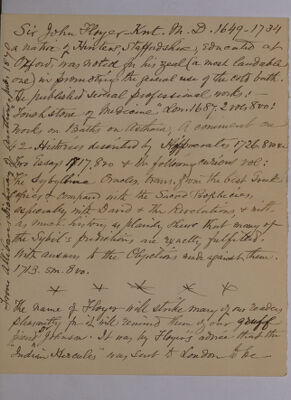 Sir John Floyer Knt. M. D. 1649-1734
a native of Hinters, Staffordshire, educated at
Oxford, was noted for his zeal (a most laudable
one) in promoting the general use of the cold bath.
He published several professional works: -
Touchstone of Medicine" Lon. 1687, 2 vols. 8vo:
Works on Baths on Asthma; A comment on
42 Histories described by Hippocrates 1726. 8vo:
Two Essays 1717, 8vo & the following curious vol:
The Sybylline Oracles, trans. from the best Greek
copies & compared with the Sacred Prophecies,
especially with Daniel & the Revelations, & with
as much history as plainly shews that many of
the Sybil's predictions are exactly fulfilled.
With answers to the Objections made against them.
1713. sm. 8vo.
The name of Floyer will strike many of our readers
pleasantly for it will remind them of our gruff
friend Johnson. It was by Floyer's advice that the
"Indian Hercules" was sent to London to be
from Allibone's Dictionary of Authors, Feb. 1890